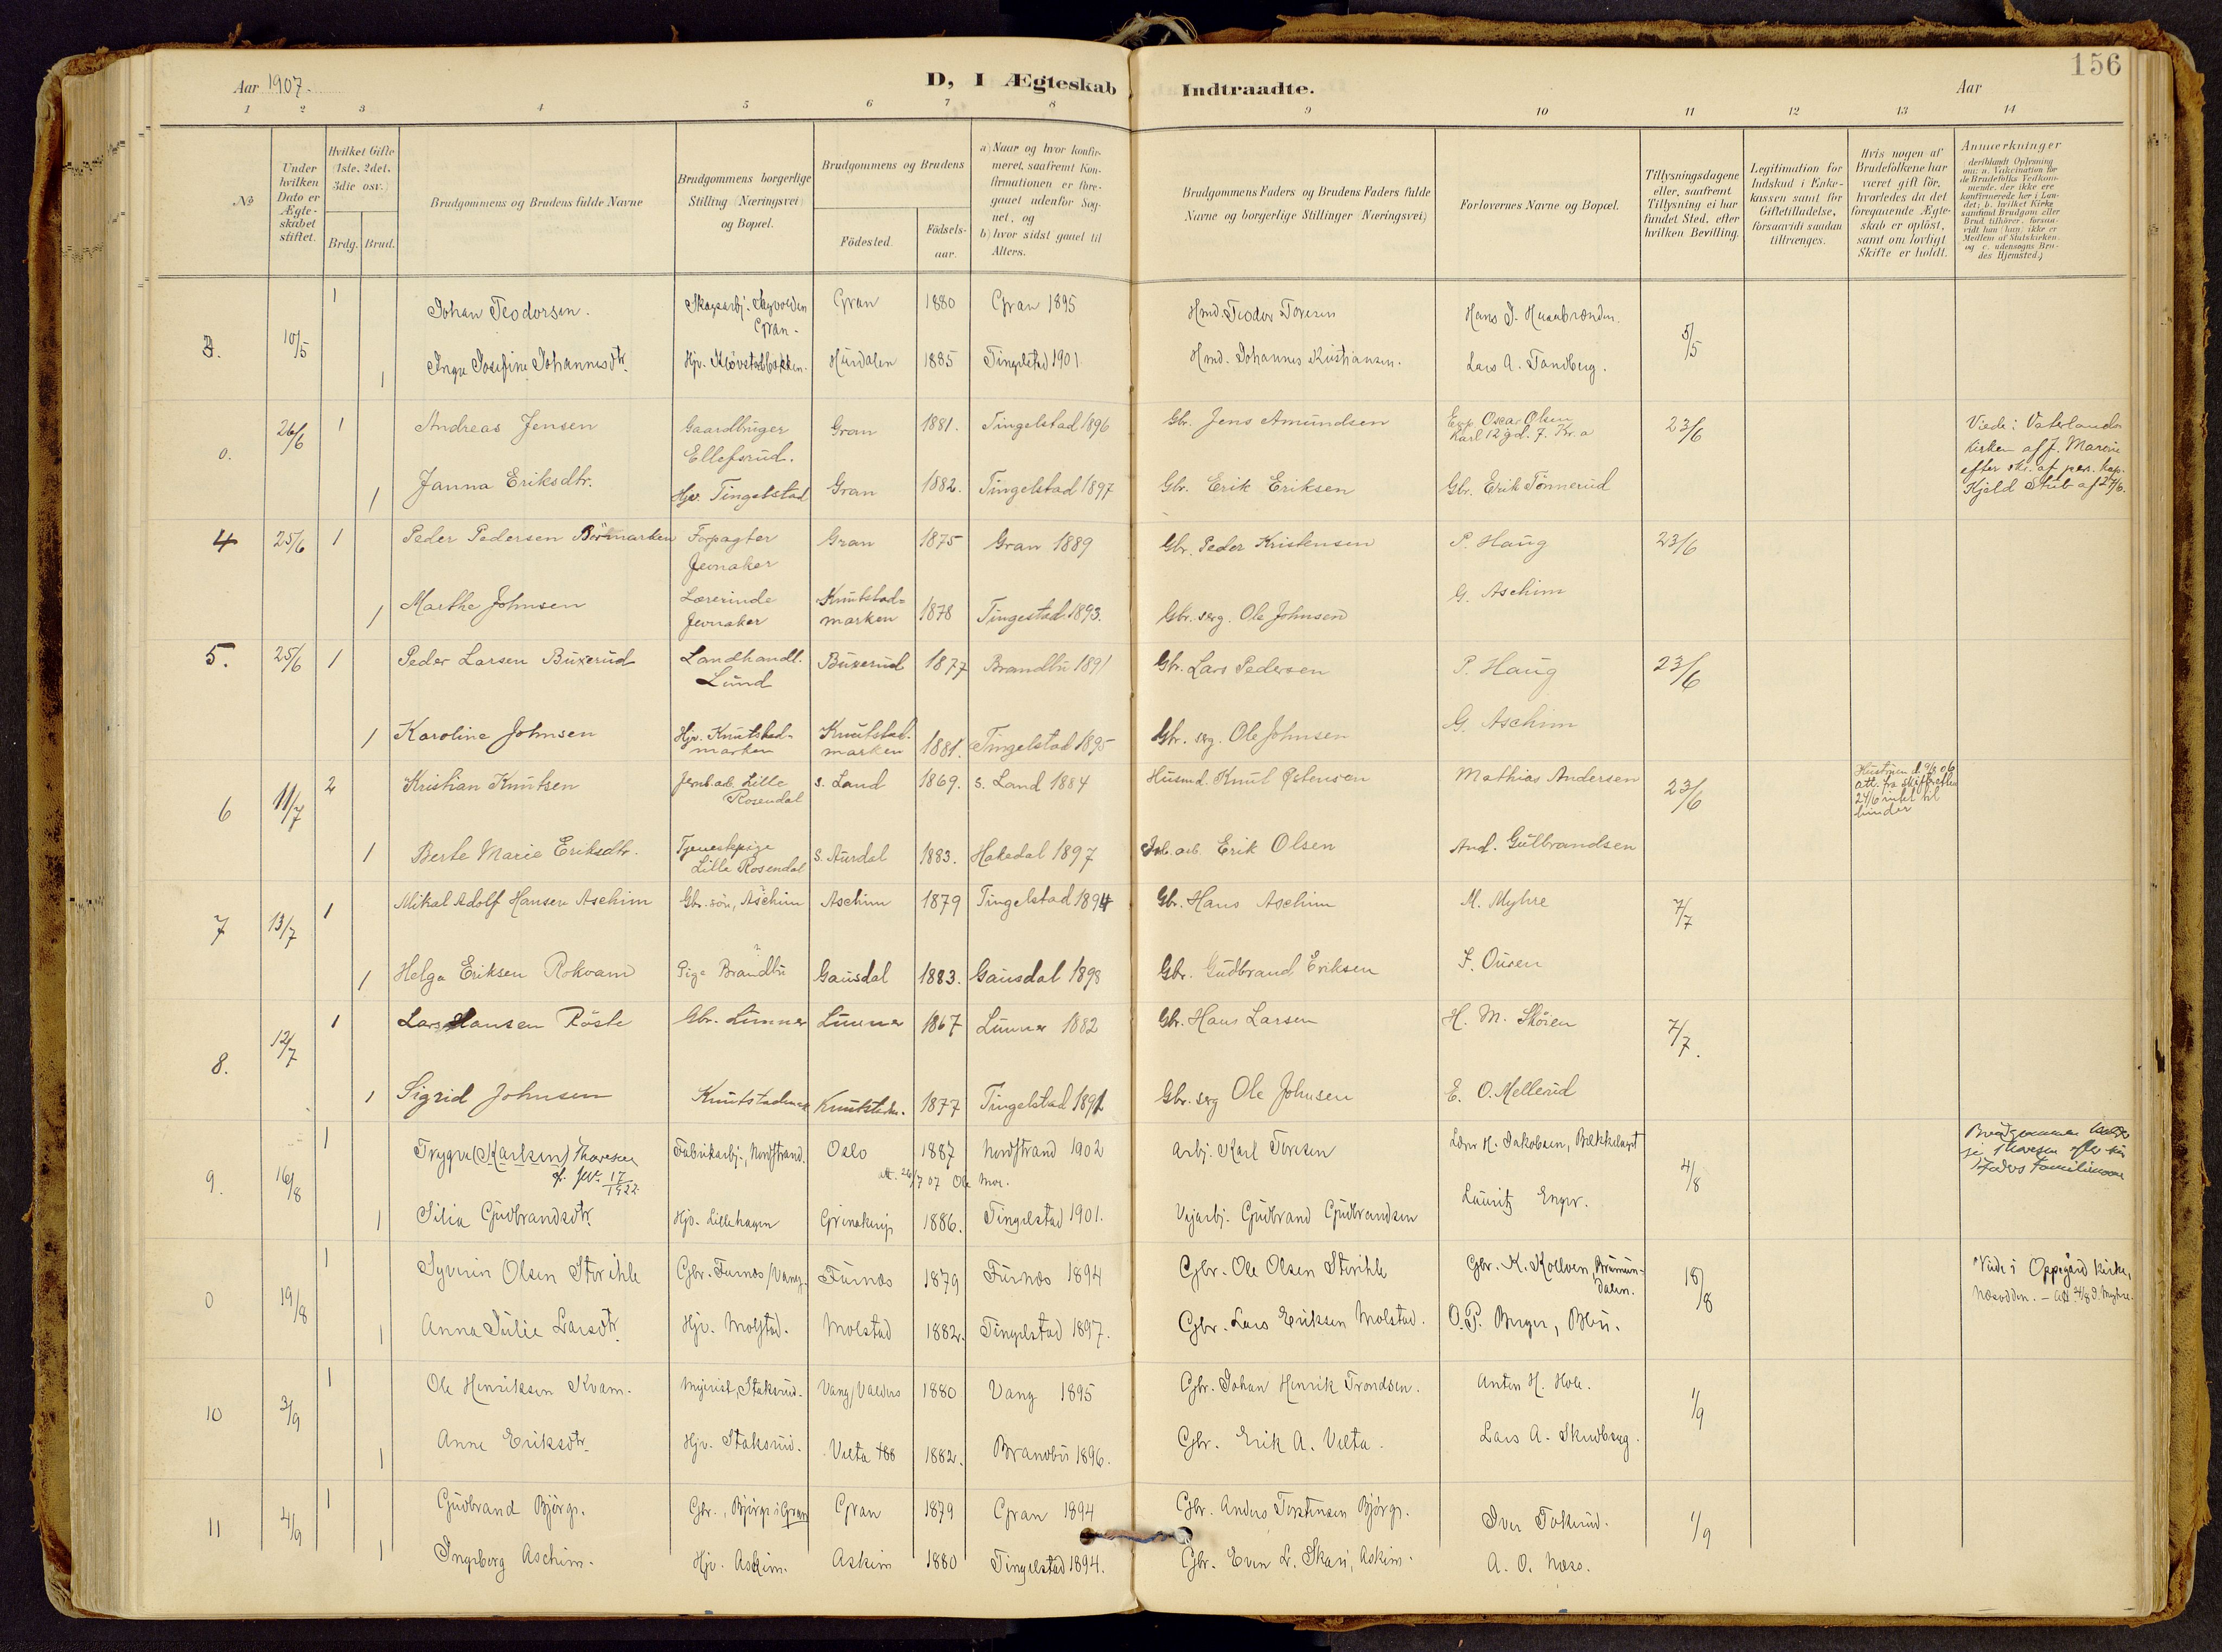 156
Aar 1907.
D, I Ægteskab Indtraadte.
Aar
1 2 3 4 5 6 7 8 9 10 11 12 13 14
No
Under hvilken Dato er Ægteskabet stiftet.
Hvilket Gifte (1ste, 2det, 3die osv.)
Brdg. Brud.
Brudgommens og Brudens fulde Navne
Brudgommens borgerlige Stilling (Næringsvei) og Bopæl.
Brudgommens og Brudens
Födested.
Födselsaar.
a) Naar og hvor konfirmeret, saafremt Konfirmationen er foregaaet udenfor Sognet, og
b) hvor sidst gaaet til Alters.
Brudgommens Faders og Brudens Faders fulde Navne og borgerlige Stillinger (Næringsvei)
Forlovernes Navne og Bopæl.
Tillysningsdagene eller, saafremt Tillysning ei har fundet Sted, efter hvilken Bevilling.
Legitimation for Indskud i Enkekassen samt for Giftetilladelse, forsaavidt saadan tiltrænges.
Hvis nogen af Brudefolkene har været gift för, hvorledes da det foregaaende Ægteskab er oplöst, samt om lovligt Skifte er holdt.
Anmærkninger
(deriblandt Oplysning om: a. Vakcination for de Brudefolks Vedkommende, der ikke ere konfirmerede her i Landet; b. hvilket Kirkesamfund Brudgom eller Brud tilhörer, forsaavidt han (hun) ikke er Medlem af Statskirken, og c. udensogns Brudes Hjemsted.)
3. 10/5 1 Johan Teodorsen. Skogsarbj. Gran. Gran 1880 Gran 1895 Hmd. Teodor Toresen Hans J. 5/5
1 Inga Josefine Johannesdtr. Hjv. Kløvstadbakken. Hurdalen 1885 Tingelstad 1901 Hmd. Johannes Kristiansen. Lars A. Tandberg.
0. 26/6 1 Andreas Jensen Gaardbruger Ellefsrud. Gran 1881. Tingelstad 1896 Gbr. Jens Amundsen Exp. Oscar Olsen Karl 12 gd. 7. Kr.a 23/6 Viede i Vaterlands Kirken af J.
1 Janna Eriksdtr. Hjv. Tingelstad Gran 1882. Tingelstad 1897 Gbr. Erik Eriksen Gbr. Erik Tönnerud efter skr. af pers. kap. Kjeld Stub af 24/6.
4 25/6 1 Peder Pedersen Börmarken Forpagter Jevnaker Gran 1875 Gran 1889 Gbr. Peder Kristensen P. Haug 23/6
1 Marthe Johnsen Lærerinde Jevnaker Knutstadmarken 1878 Tingestad 1893. Gbr. serg. Ole Johnsen G. Aschim
5. 25/6 1 Peder Larsen Buxerud Landhandl. Lund Buxerud 1877 Brandbu 1891 Gbr. Lars Pedersen P. Haug 23/6
1 Karoline Johnsen Hjv. Knutstadmarken Knutstadmarken 1881. Tingelstad 1895 Gbr. serg. Ole Johnsen G. Aschim
6 11/7 2 Kristian Knutsen Jernb.arb. Lille Rosendal S. Land 1869. S. Land 1884 Husmd. Knut Østensen Mathias Andersen 23/6 Hustruen d. 9/3 06 att. fra skifteretten 24/6 intet til hinder
1 Berte Marie Eriksdtr. Tjenestepige Lille Rosendal S. Aurdal 1883. Hakedal 1897 Jrb.arb. Erik Olsen And. Gulbrandsen
7 13/7 1 Mikal Adolf Hansen Aschim Gbr. sön, Aschim Aschim 1879 Tingelstad 1894 Gbr. Hans Aschim M. Myhre 7/7
1 Helga Eriksen Rokvam Pige Brandbu Gausdal 1883. Gausdal 1898 Gbr. Gudbrand Eriksen J. Ousen
8. 12/7 1 Lars Hansen Röste Gbr. Lunner Lunner 1867 Lunner 1882 Gbr. Hans Larsen H. M. Skören 7/7.
1 Sigrid Johnsen Knutstadm. 1877 Tingelstad 1891 Gbr. serg Ole Johnsen E. O. Mellerud
9. 16/8 1 Trygve (Karlsen) Thoresen Fabrikarbj., Nordstrand. Oslo 1887 Nordstrand 1902 Arbj. Karl Toresen Lærer H. Jakobsen, Bækkelaget 4/8 Brudgommen
17/1922. att. 26/7 07 sig Thoresen efter sin Faders Familienavn
1 Silia Gudbrandsdtr. Hjv. Lillehagen Grinakereje 1886. Tingelstad 1901. Vejarbj. Gudbrand Gudbrandsen Lauritz Enger.
0 19/8 1 Syverin Olsen Storihle Gbr. Furnes/Vang. Furnes 1879 Furnes 1894 Gbr. Ole Olsen Storihle Gbr. K. Kolloen, Brumundalen. 18/8 Viede i Oppegård kirke, Nesodden. - Att 4/8 D. Myhre.
1 Anna Julie Larsdtr. Hjv. Molstad. Molstad 1882. Tingelstad 1897. Gbr. Lars Eriksen Molstad. O. P. Berger, Bbu.
10 3/9 1 Ole Henriksen Kvam. Mejerist, Staksrud. Vang/Valders 1880 Vang 1895 Gbr. Johan Henrik Trondsen. Anten H. Hole. 1/9
1 Anne Eriksdtr. Hjv. Staksrud. Velta 1882. Brandbu 1896. Gbr. Erik A. Velta. Lars A. Skudberg.
11 4/9 1 Gudbrand Björge. Gbr., Björge i Gran Gran 1879 Gran 1894 Gbr. Anders Torstensen Björge. Iver Tokerud. 1/9
1 Ingeborg Aschim. Hjv. Askim. Askim 1880 Tingelstad 1894. Gbr. Even L. Skari, Askim. A. O. Næss.